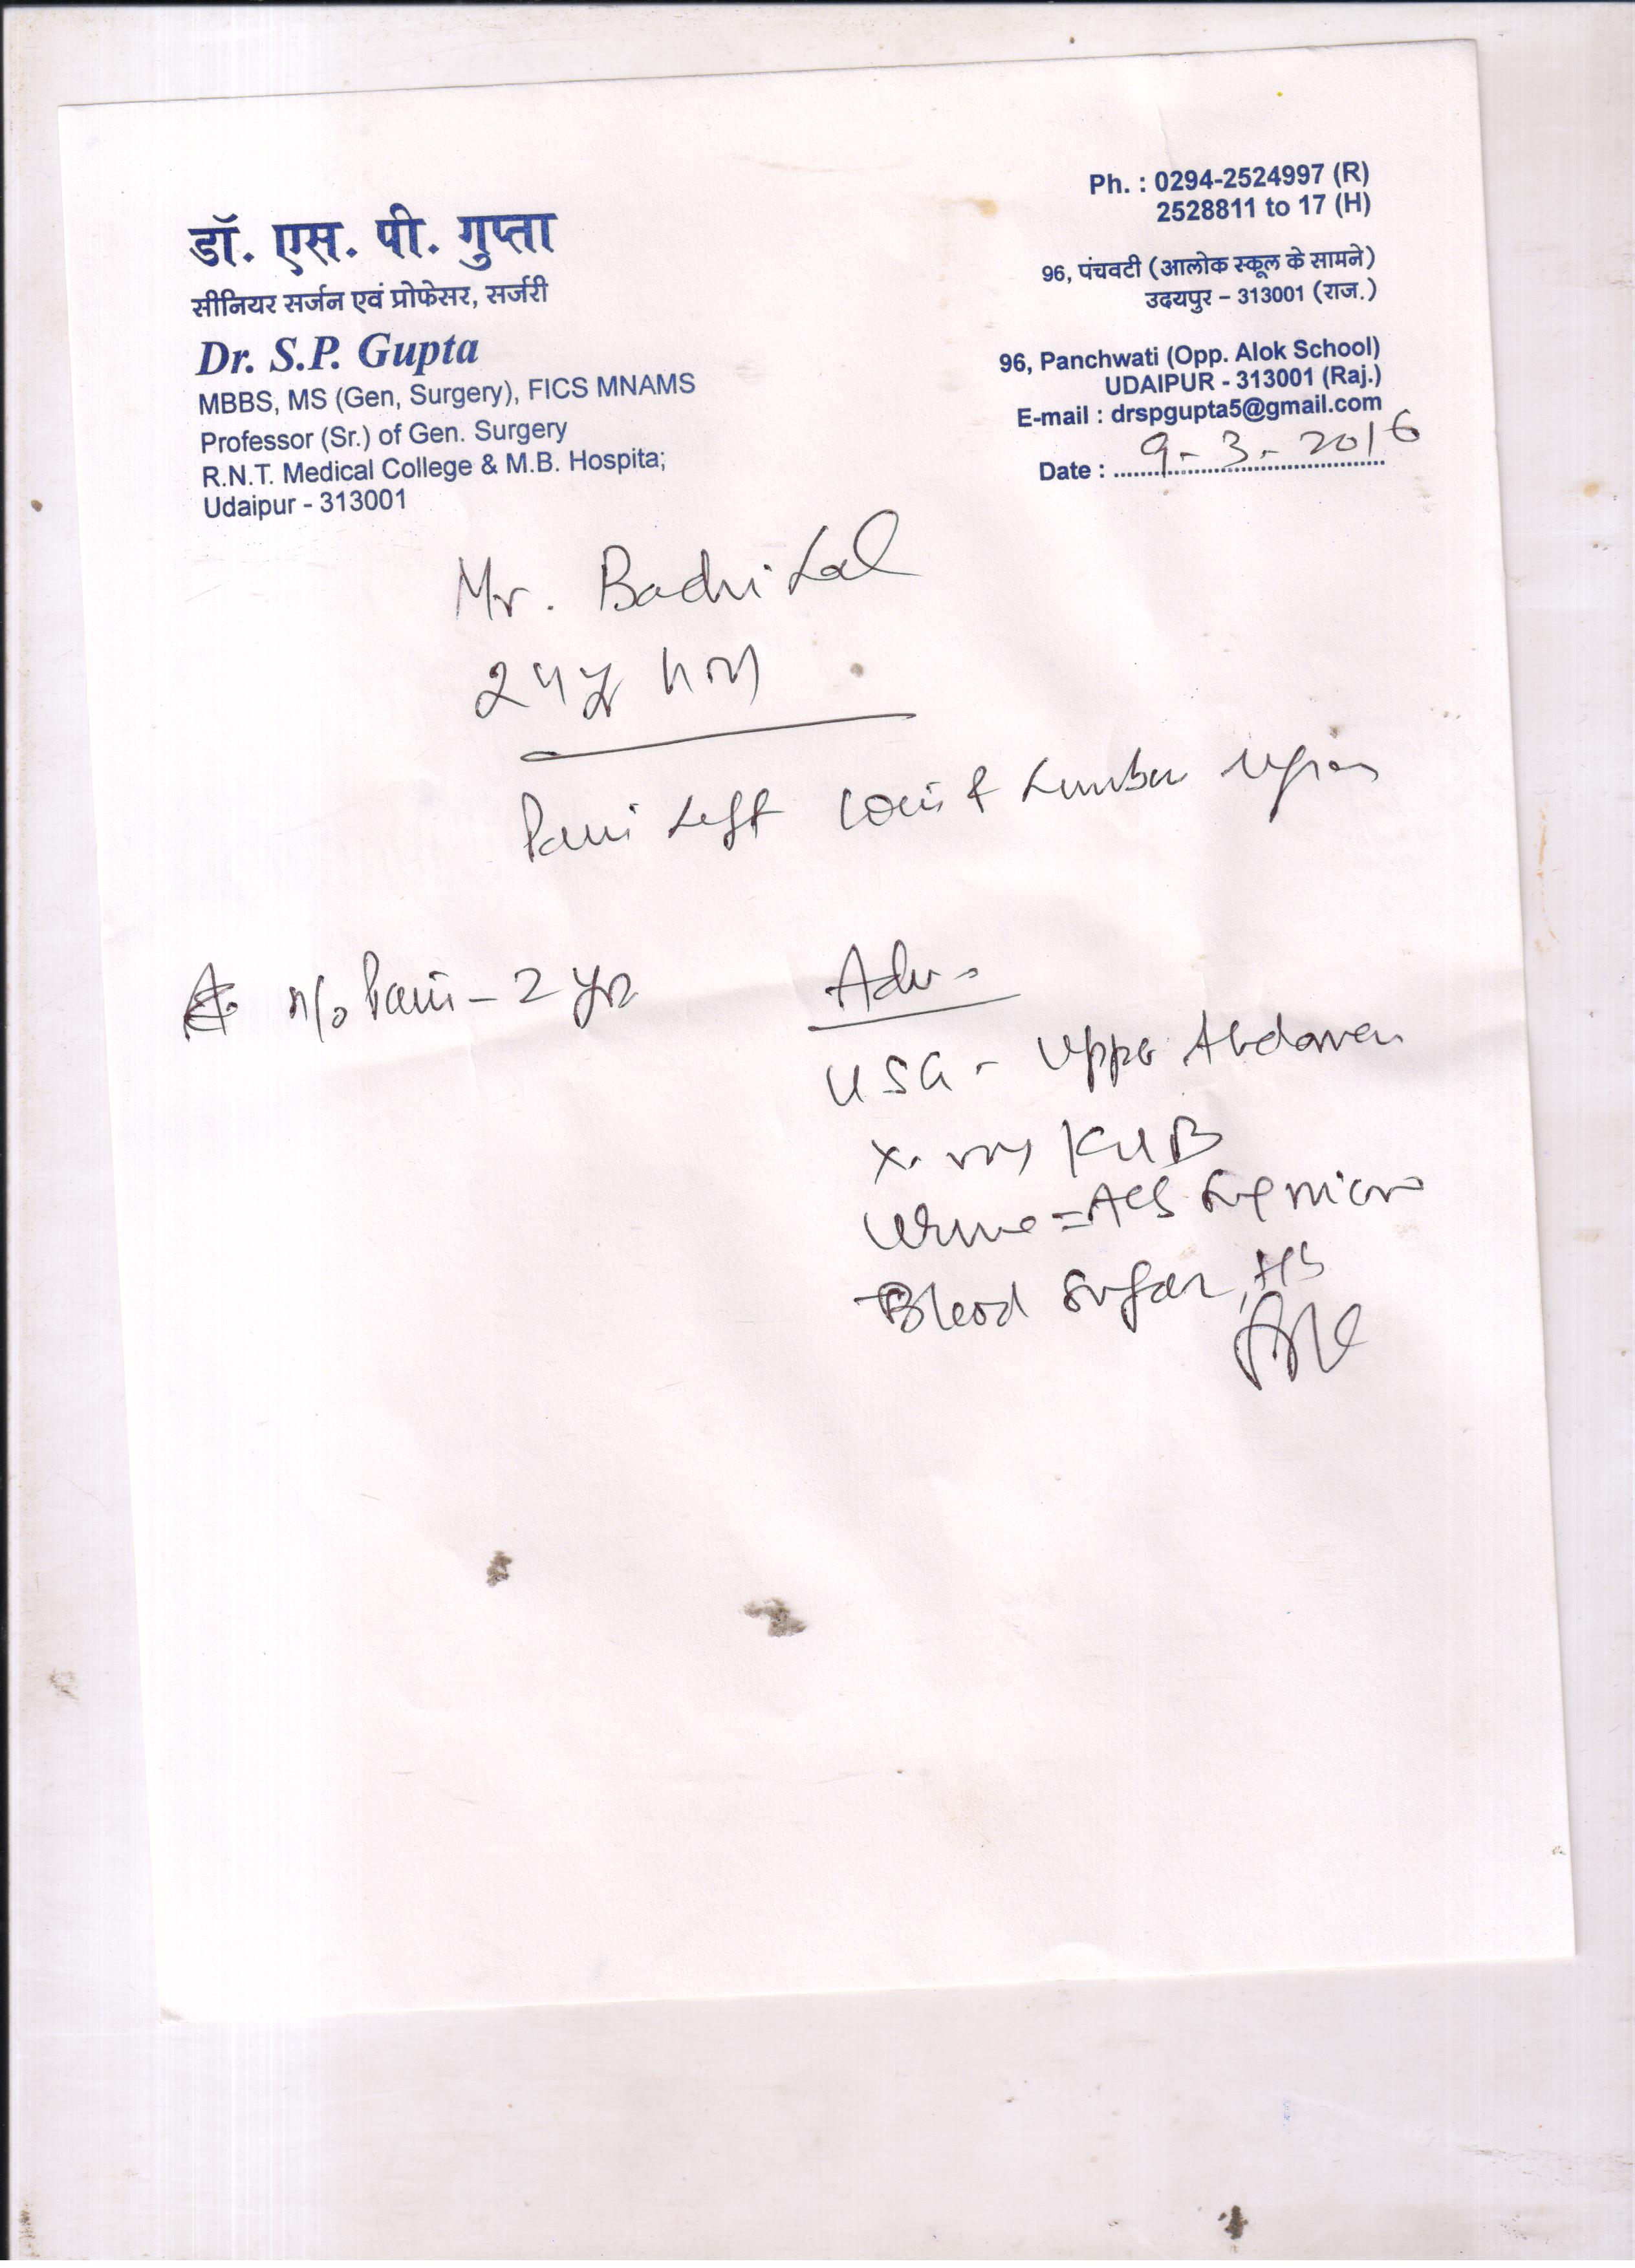 डॉ. एस. पी. गुप्ता
सीनियर सर्जन एवं प्रोफेसर, सर्जरी
Dr. S.P. Gupta
MBBS, MS (Gen, Surgery), FICS MNAMS
Professor (Sr.) of Gen. Surgery
R.N.T. Medical College & M.B. Hospita;
Udaipur - 313001
Ph. : 0294-2524997 (R)
2528811 to 17 (H)
96, पंचवटी (आलोक स्कूल के सामने)
उदयपुर – 313001 (राज.)
96, Panchwati (Opp. Alok School)
UDAIPUR - 313001 (Raj.)
E-mail : drspgupta5@gmail.com
Date : 9-3-2016
Mr. Badri Lal
24y
Pain Left Loin & Lumbar region
H/o Pain - 2 yrs
Adv-
USG - Upper Abdomen
X-ray KUB
Urine = Alb Sug micro
Blood Sugar, Hb